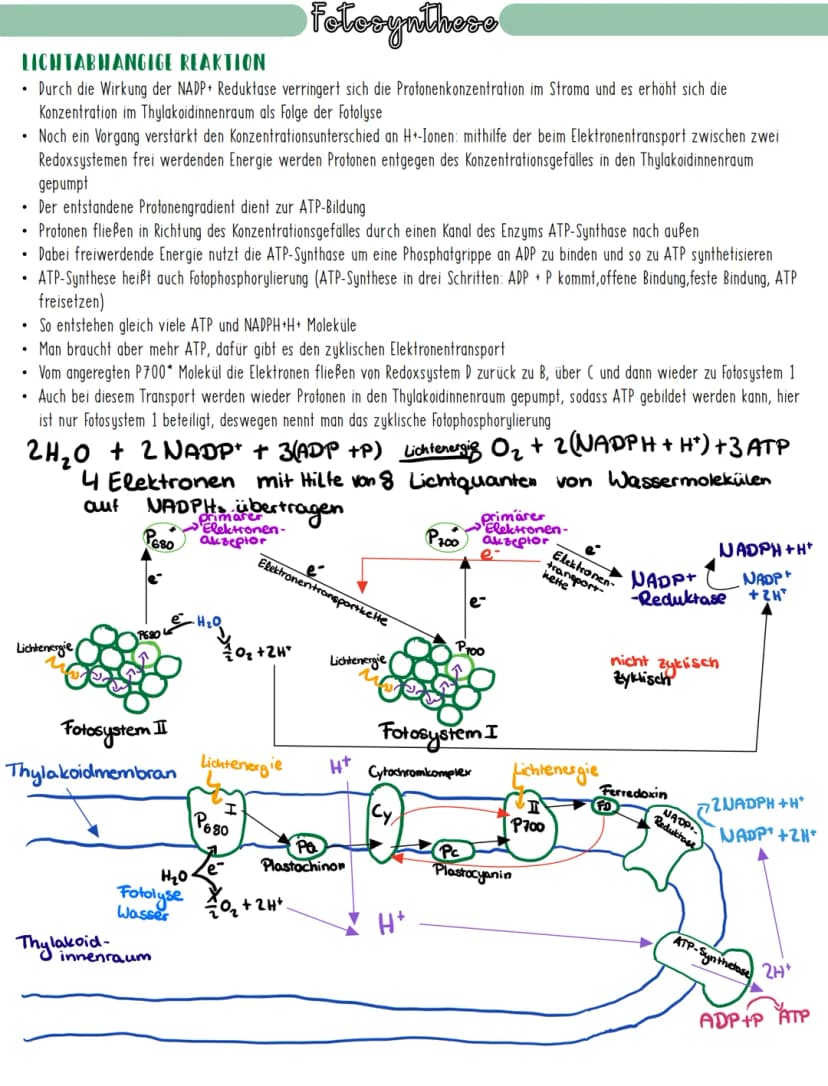 Fotosynthese
LICHTABHÄNGIGE REAKTION
• Durch die Wirkung der NADP+ Reduktase verringert sich die Protonenkonzentration im Stroma und es erhöht sich die
Konzentration im Thylakoidinnenraum als Folge der Fotolyse
• Noch ein Vorgang verstärkt den Konzentrationsunterschied an H+-Ionen: mithilfe der beim Elektronentransport zwischen zwei
Redoxsystemen frei werdenden Energie werden Protonen entgegen des Konzentrationsgefälles in den Thylakoidinnenraum
gepumpt
• Der entstandene Protonengradient dient zur ATP-Bildung
• Protonen fließen in Richtung des Konzentrationsgefälles durch einen Kanal des Enzyms ATP-Synthase nach außen
• Dabei freiwerdende Energie nutzt die ATP-Synthase um eine Phosphatgrippe an ADP zu binden und so zu ATP synthetisieren
• ATP-Synthese heißt auch Fotophosphorylierung (ATP-Synthese in drei Schritten: ADP + P kommt,offene Bindung,feste Bindung, ATP
freisetzen)
• So entstehen gleich viele ATP und NADPH+H+ Moleküle
• Man braucht aber mehr ATP, dafür gibt es den zyklischen Elektronentransport
• Vom angeregten P700* Molekül die Elektronen fließen von Redoxsystem D zurück zu B, über C und dann wieder zu Fotosystem 1
• Auch bei diesem Transport werden wieder Protonen in den Thylakoidinnenraum gepumpt, sodass ATP gebildet werden kann, hier
ist nur Fotosystem 1 beteiligt, deswegen nennt man das zyklische Fotophosphorylierung
2H₂O + 2NADP⁺ + 3(ADP +P) Lichtenergie O₂ + 2(NADPH + H⁺) +3ATP
4 Elektronen mit Hilfe von 8 Lichtquanten von Wassermolekülen
auf NADPH₂ übertragen
P680
primärer
Elektronen-
akzeptor
P700
primärer
Elektronen-
akzeptor
e⁻
e⁻
Elektronentransportkette
e⁻
e⁻
Elektronen-
transport-
kette
NADPH+H⁺
NADP+
-Reduktase
NADP⁺
+2H⁺
e⁻
e⁻
P680
e⁻
H₂O
½O₂ +2H⁺
Lichtenergie
Lichtenergie
P700
nicht zyklisch
zyklisch
Fotosystem II
Fotosystem I
Thylakoidmembran
Lichtenergie
H⁺
Cytochromkomplex
Lichtenergie
Ferredoxin
I
P680
Cy
II
P700
FD
NADP+-
Reduktase
2NADPH +H⁺
NADP⁺ +2H⁺
PQ
Plastochinon
Pc
Plastocyanin
H₂O
e⁻
Fotolyse
Wasser
½O₂ +2H⁺
H⁺
Thylakoid-
innenraum
ATP-Synthetase
2H⁺
ADP+P
ATP